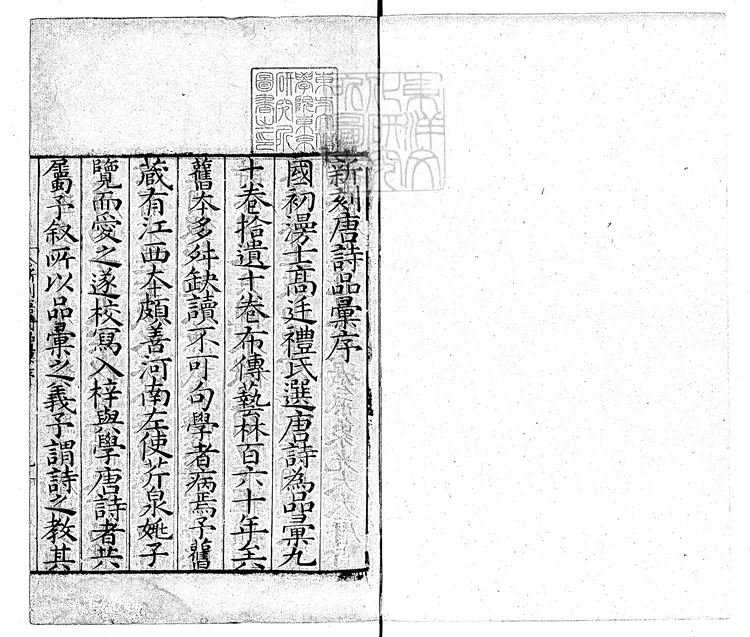 新刻唐詩品彙序
國初漫士高廷禮氏選唐詩為品彙九
十卷拾遺十卷布傳藝林百六十年矣
舊本多舛缺讀不可句學者病焉予舊
藏有江西本頗善河南左使芹泉姚子
覽而愛之遂校寫入梓與學唐詩者共
屬予叙所以品彙之義予謂詩之教其